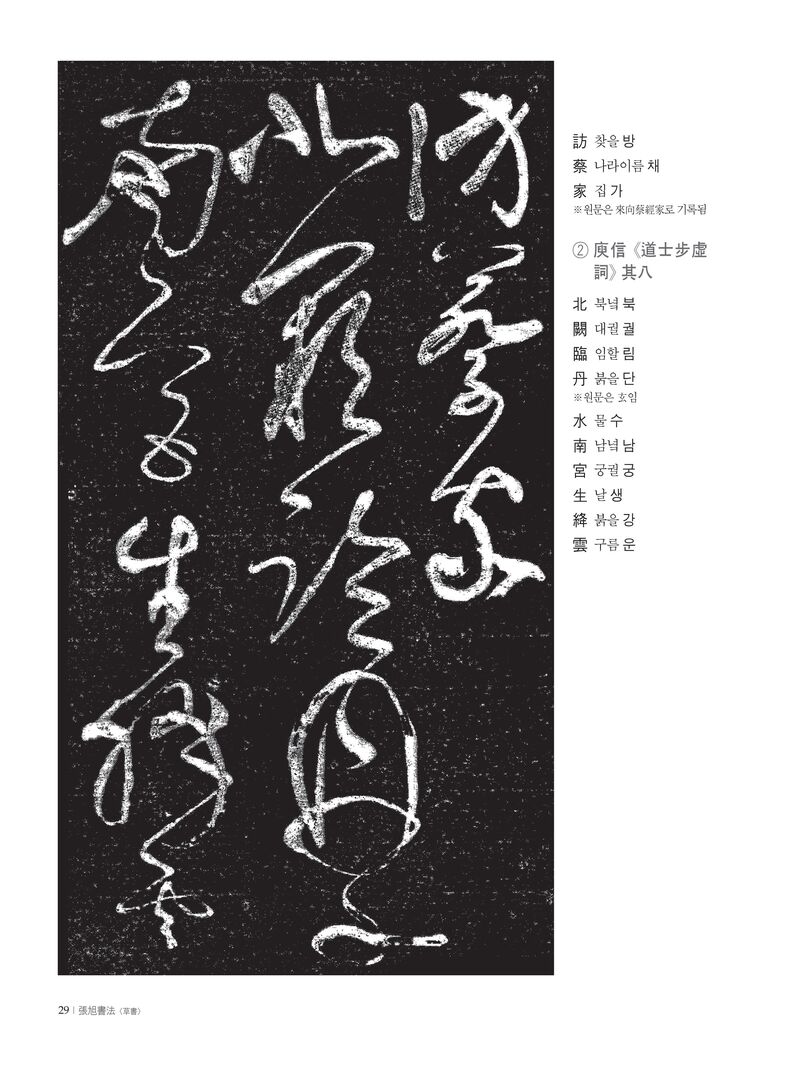 訪蔡家
北闕臨丹水
南宮生絳雲
訪 찾을 방
蔡 나라이름 채
家 집 가
※원문은 來向蔡經家로 기록됨
② 庾信《道士步虛
詞》其八
北 북녘 북
闕 대궐 궐
臨 임할 림
丹 붉을 단
※원문은 玄임
水 물 수
南 남녘 남
宮 궁궐 궁
生 날 생
絳 붉을 강
雲 구름 운
29 | 張旭書法〈草書〉